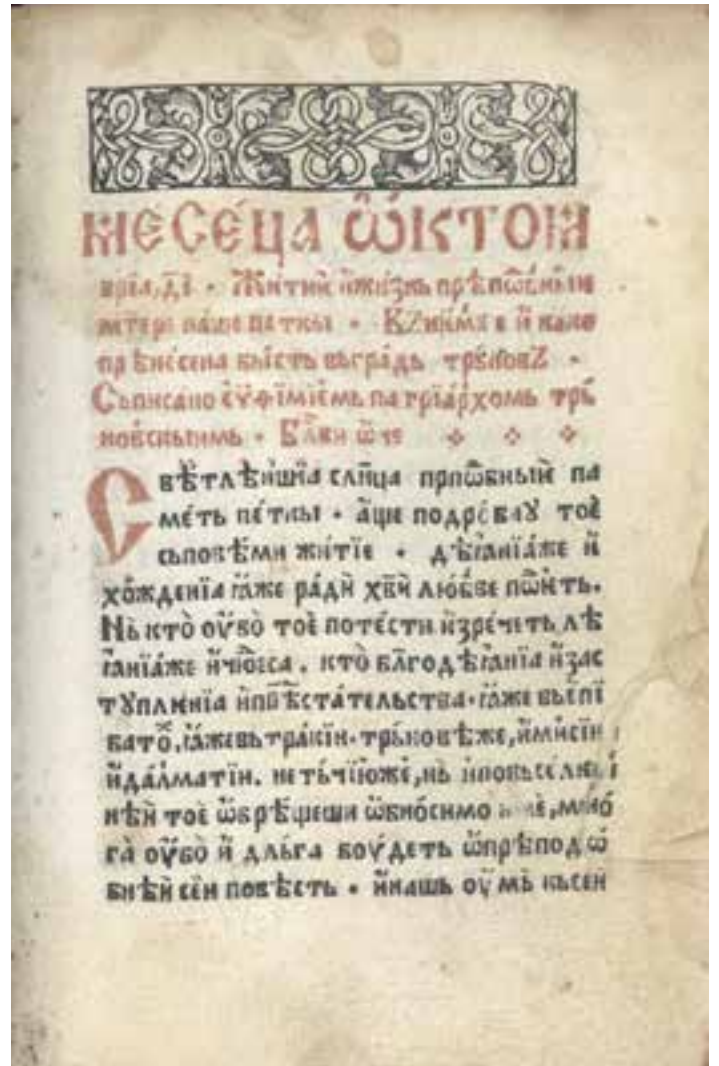 МЕСЕ́ЦА Ѡ҆КТОМ
врїа, д҃і · Жи́тїи и҆жи́знь прѣпѡ҆бнїи
матере на́ше петкы · и҆ како
прѣне́сена бы́сть въгра́дь тръ́новъ ·
Съписа́но єѵ҆фїмїемь патрїа́рхомь трь́
но́вскыимь · Бл҃ви ѡ҆ч҃е
Свѣ́тлѣишїа сл҃нца прпѡ҆бныи па
меть пе́ткы · а҆ще подробну тое҆
съповѣ́ми житїе · дѣꙗ҆нїа́же и҆
хожденїа ꙗ҆же ра́ди хв҃и лю́бве по́и҆ть.
Нь кто̀ оу҆бо̀ тое҆ поте́сти и҆зрече́ть дѣ
ꙗ҆нїа́же и҆чю́деса. кто̀ бл҃годѣꙗ҆нїа и҆зас
тꙋплѥнїа и҆прⷣѣста́тельства· ꙗ҆же вьепї
вато̀, ꙗ҆жевьтра́кїи· тръ́новѣже, и҆мисїи
и҆да́лматїи. нетьчїю́же, нь и҆повьселѥ
нѣ́и тое҆ ѡ҆брѣ́щеши ѡ҆бно́симо и҆ме, мно́
га̀ оу҆бо̀ и҆ дль́га боу́деть ѡ҆прѣподѡ́
бнѣ́и сеи повѣ́сть · и҆нашь оу҆мь кьсеи